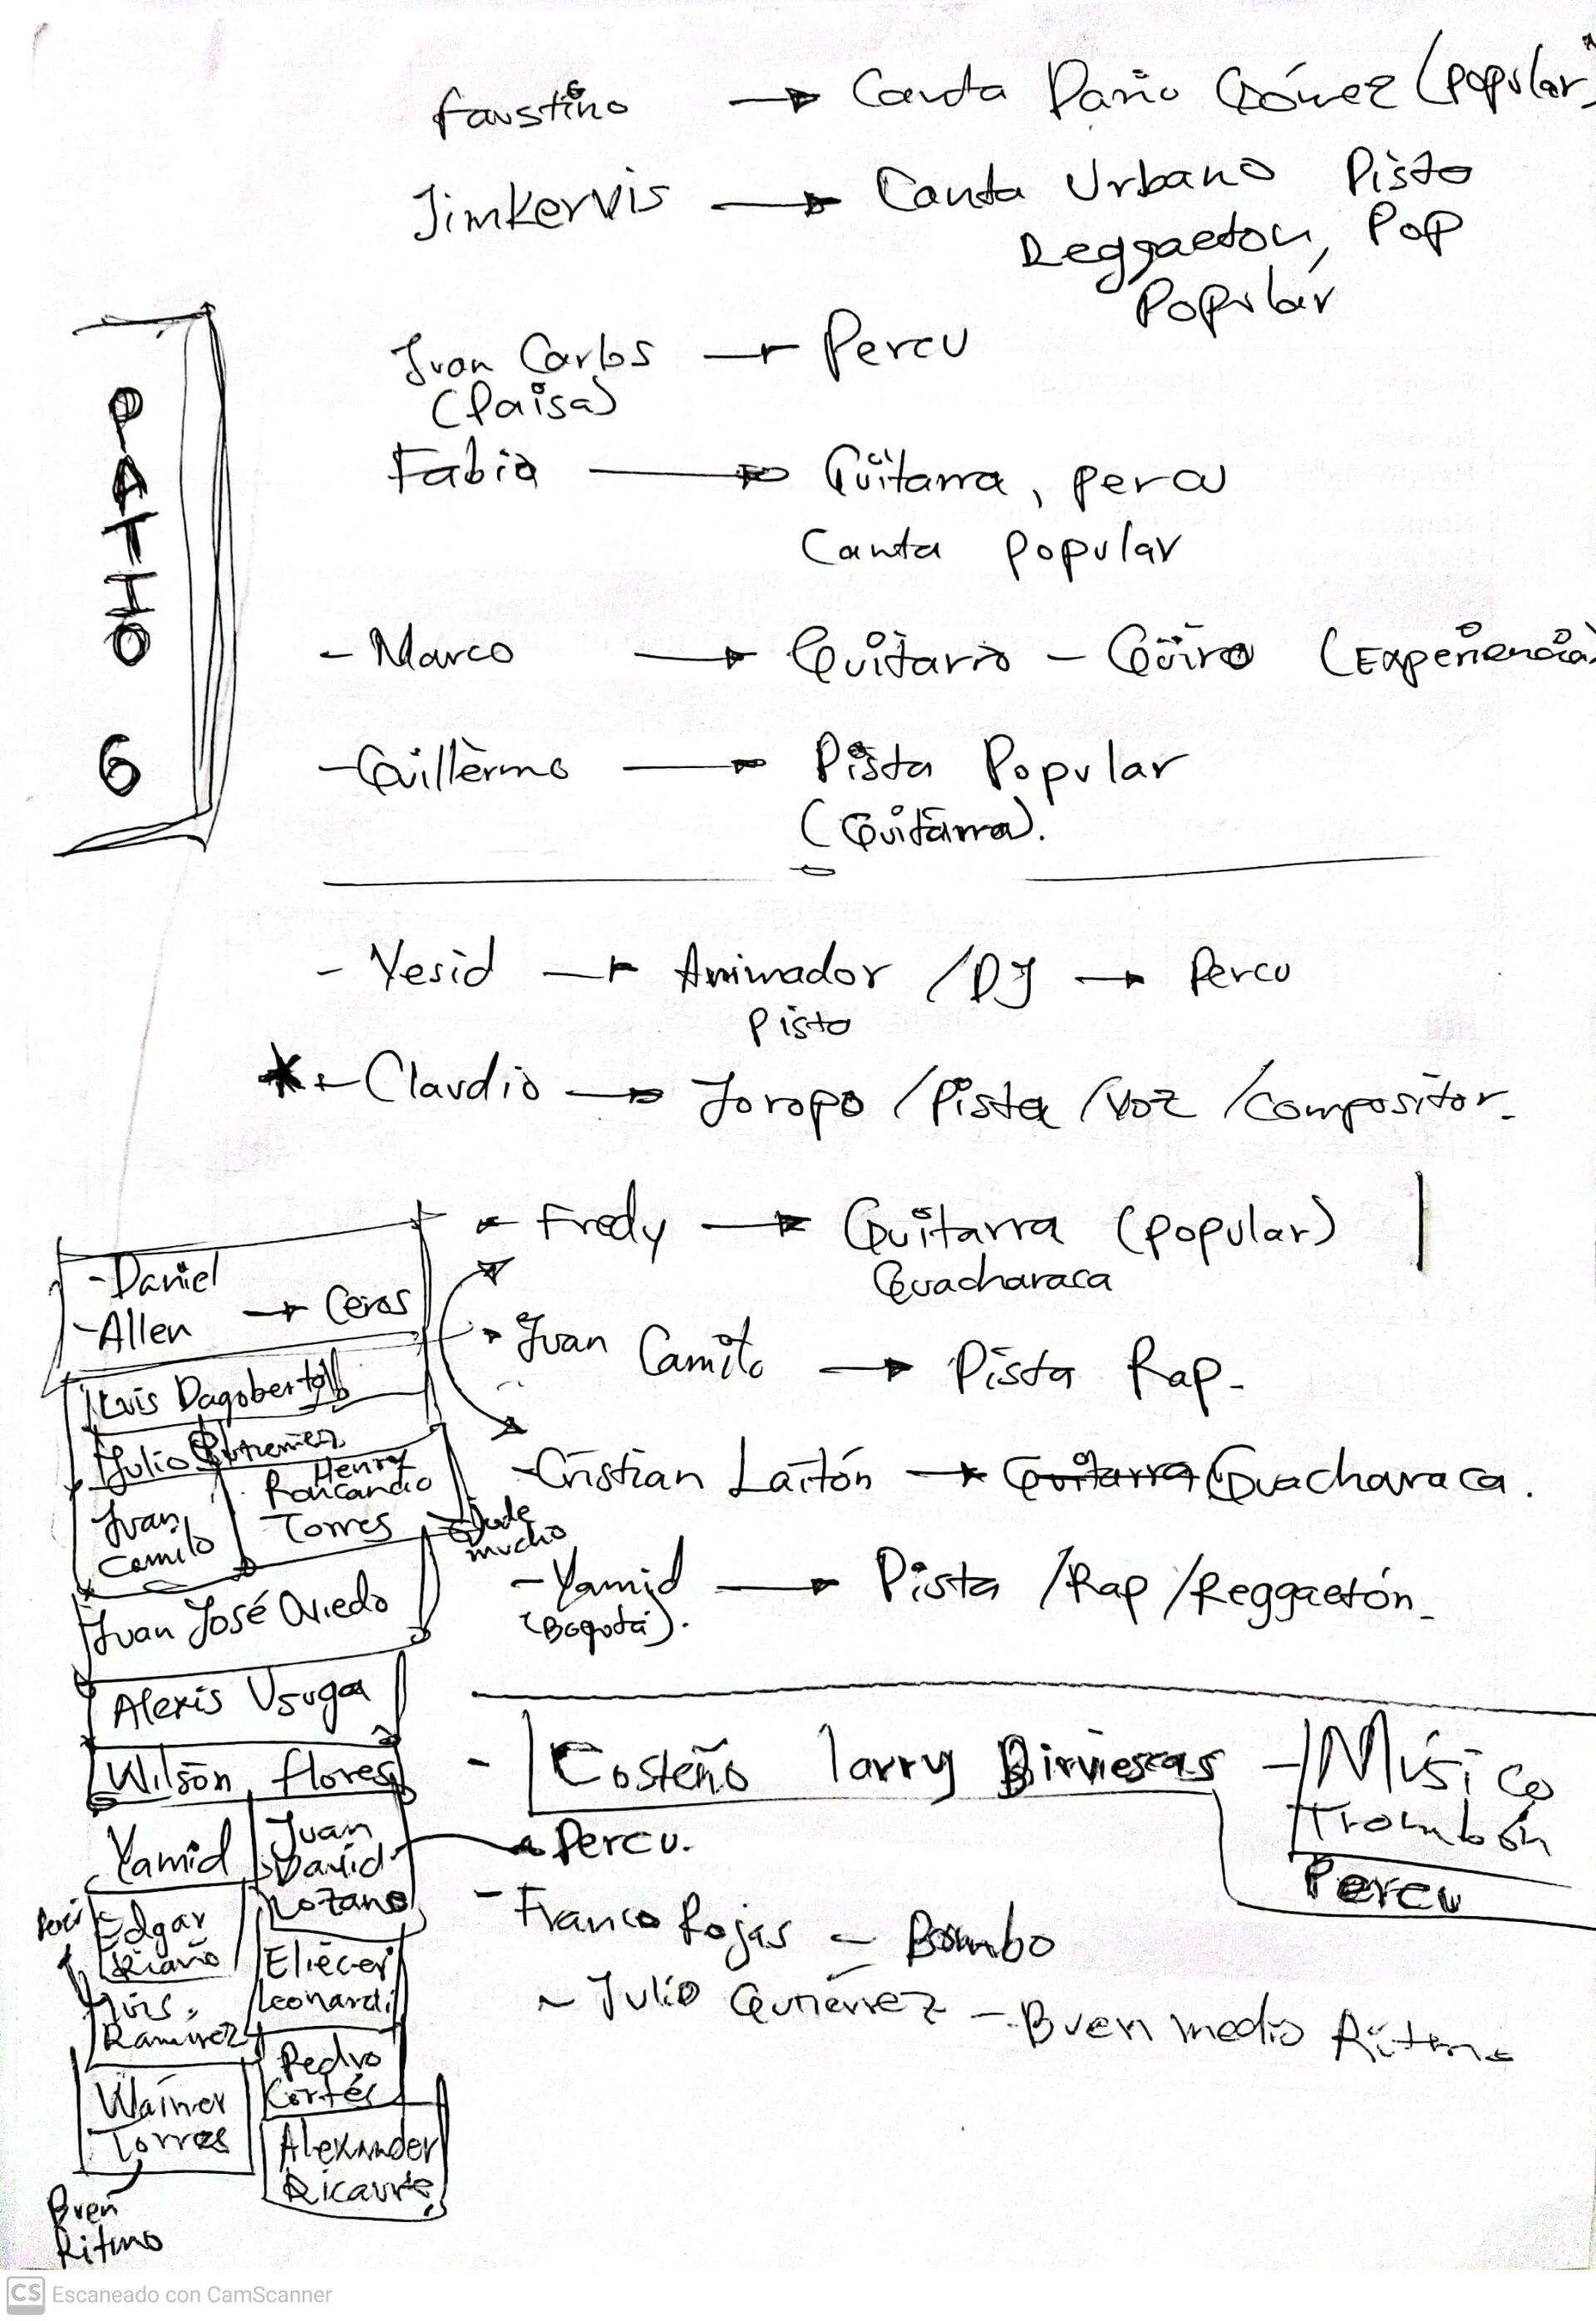 Faustino → Canta Dario Gómez (popular)
Jimkervis → Canta Urbano Pista
Reggaeton, Pop
Popular
Juan Carlos → Percu
(Paisa)
Fabio → Guitarra, percu
Canta popular
PATIO 6
- Marco → Guitarra - Güiro (Experiencia)
- Guillermo → Pista Popular
(Guitarra).
- Yesid → Animador / DJ → Percu
Pista
* - Claudio → Joropo / Pista / Voz / compositor.
- Fredy → Guitarra (popular)
Guacharaca
- Juan Camilo → Pista Rap.
- Cristian Laitón → Guitarra Guacharaca.
- Yamid → Pista / Rap / Reggaetón.
(Bogotá).
- Daniel
- Allen → Ceros
Luis Dagoberto
Julio Gutierrez
Juan
Camilo
Henry
Roncancio
Torres
mucho
Juan José Oviedo
Alexis Usuga
Wilson flores
Yamid
Juan
David
Lozano
Edgar
Riaño
Eliécer
Leonardi
Luis
Ramirez
Pedro
Cortés
Wainer
Torres
Alexander
Ricaurte
Buen
Ritmo
- Costeño larry Birviescas - Músico
Trombón
Percu
Percu.
- Franco Rojas - Bombo
- Julio Gutiérrez - Buen medio Ritmo
CS Escaneado con CamScanner